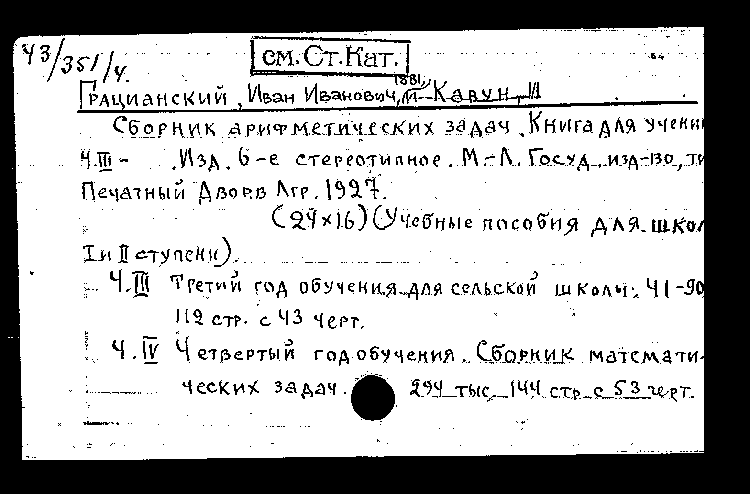 43/351/4.
см. Ст. Кат.
Грацианский, Иван Иванович, 1881, и Кавун, И
Сборник арифметических задач. Книга для учени
Ч.III- . Изд. 6-е стереотипное. М.-Л. Госуд. изд-во, ти
Печатный Двор в Лгр. 1927.
(24×16) (Учебные пособия для школ
I и II ступени).
Ч.III Третий год обучения для сельской школы. 41-90
112 стр. с 43 черт.
Ч.IV Четвертый год обучения. Сборник математи-
ческих задач. 294 тыс. 144 стр. с 53 черт.